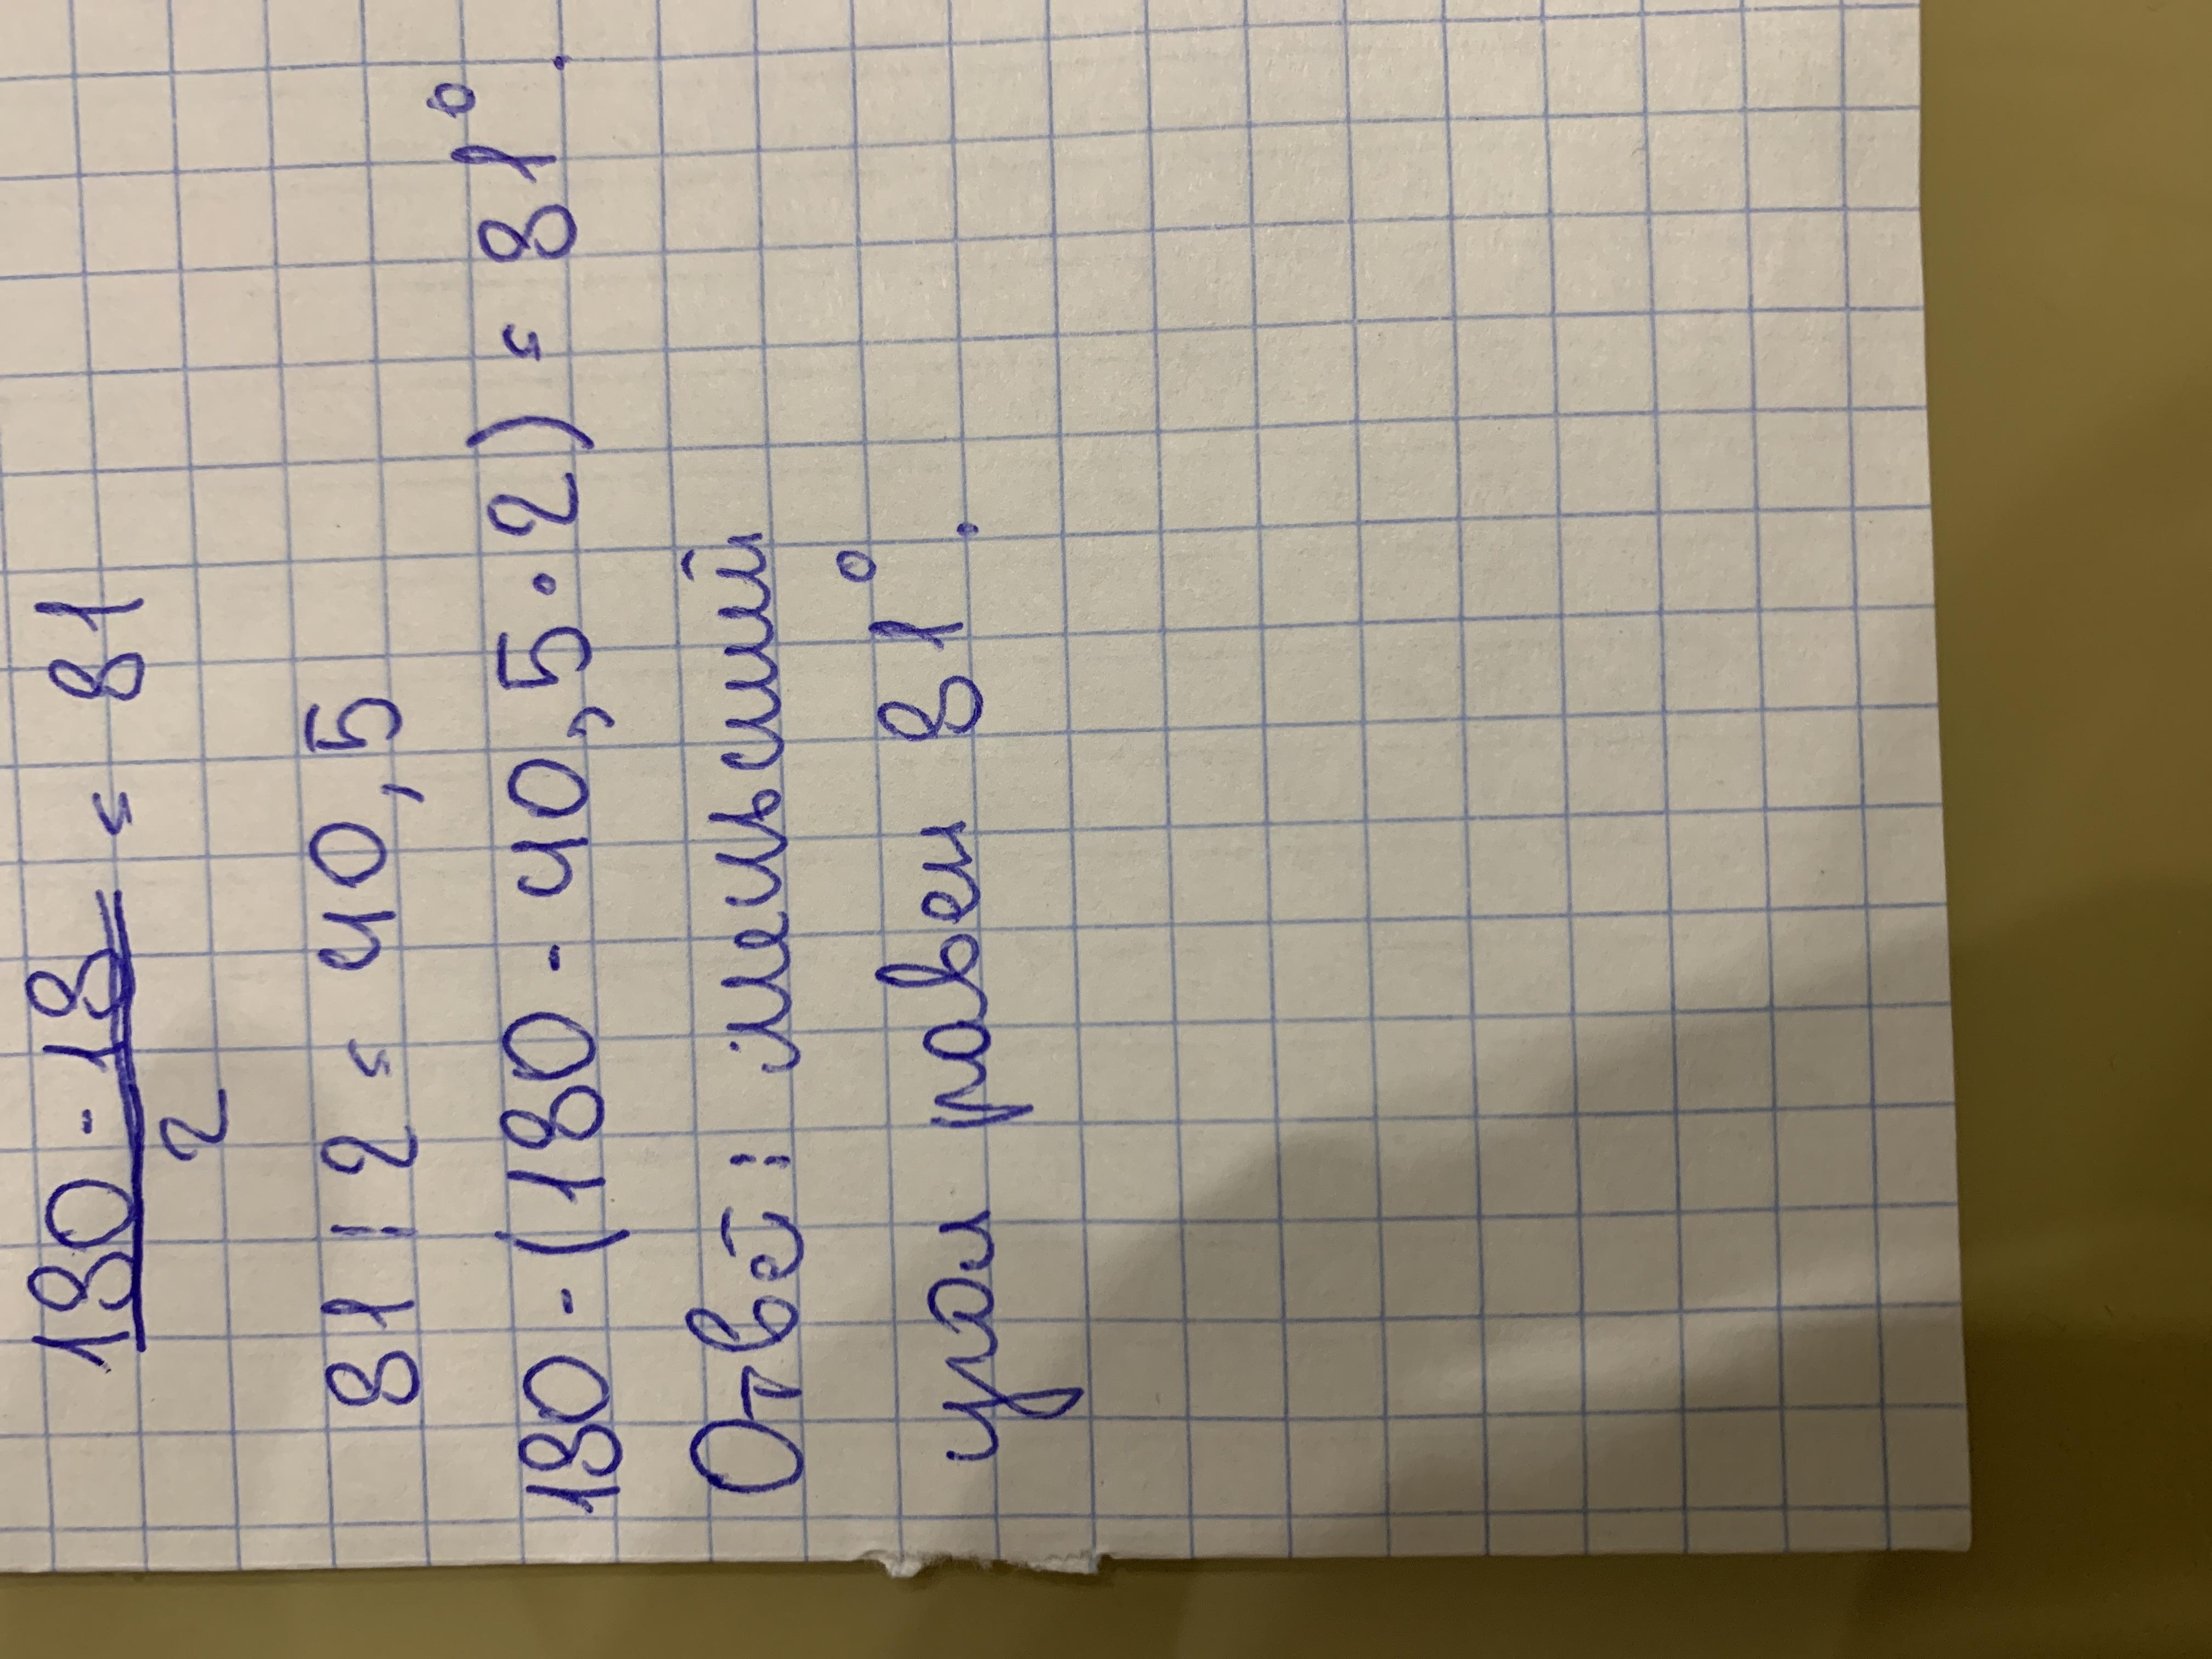 180 - 18 = 81
2
81 : 2 = 40,5
180 - (180 - 40,5 · 2) = 81°.
Ответ: меньший
угол равен 81°.